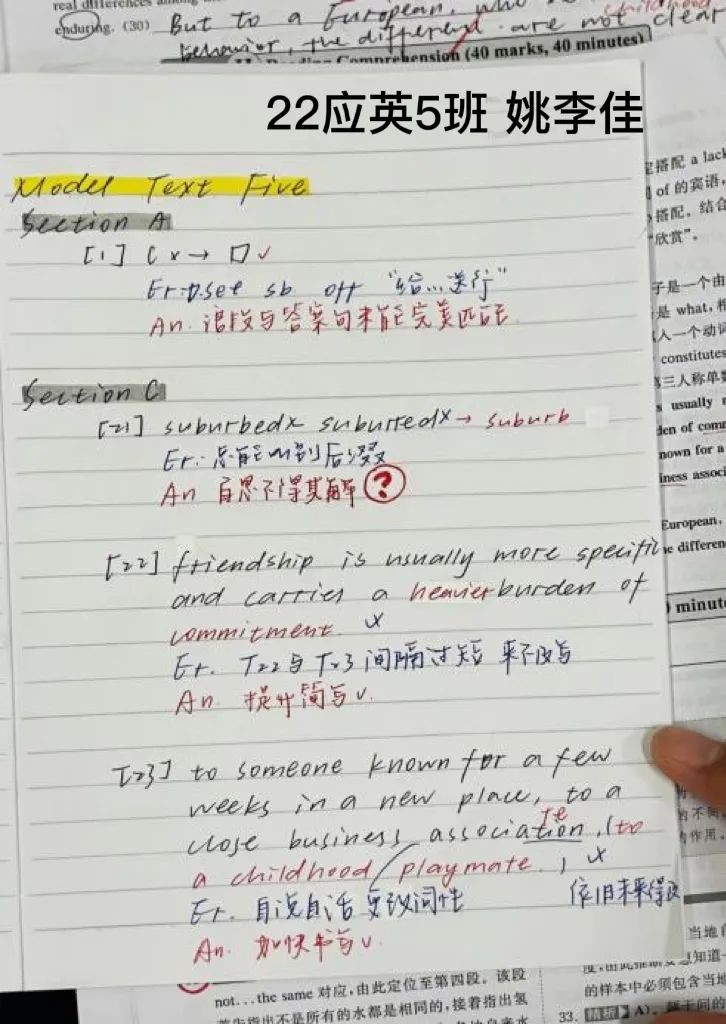 real differences among
enduring. (30) But to a European, who
childhood
behavior, the different are not clear
Comprehension (40 marks, 40 minutes)
22应英5班 姚李佳
Model Text Five
Section A
[1] C x → D √
Er: set sb. off “给…送行”
An. 语段与答案句未能完美匹配
Section C
[21] suburbedx suburredx → suburb
Er: 总能听到后缀
An 百思不得其解 ?
[22] friendship is usually more specific
and carries a heavier burden of
commitment. x
Er. T22与T23间隔过短 来不及写
An. 提升简写√.
[23] to someone known for a few
weeks in a new place, to a
close business association, (to
te
a childhood playmate.) x
Er. 自说自话 更改词性 依旧未来得及
An. 加快书写√.
搭配 a lack
of 的宾语,
搭配。结合
“欣赏”。
子是一个由
是 what,
人一个动词
constitutes
三人称单数
usually
den of com
nown for a
iness associ
European,
e differen
minut
的不同
作用,
当地自
知道
的样本中必须包含当地
33. 精析 A)。
not…the same 对应,由此定位至第四段。该段
首先指出不是所有的水都是相同的,接着指出氢